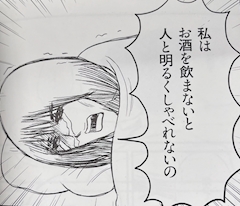 私は
お酒を飲まないと
人と明るくしゃべれないの